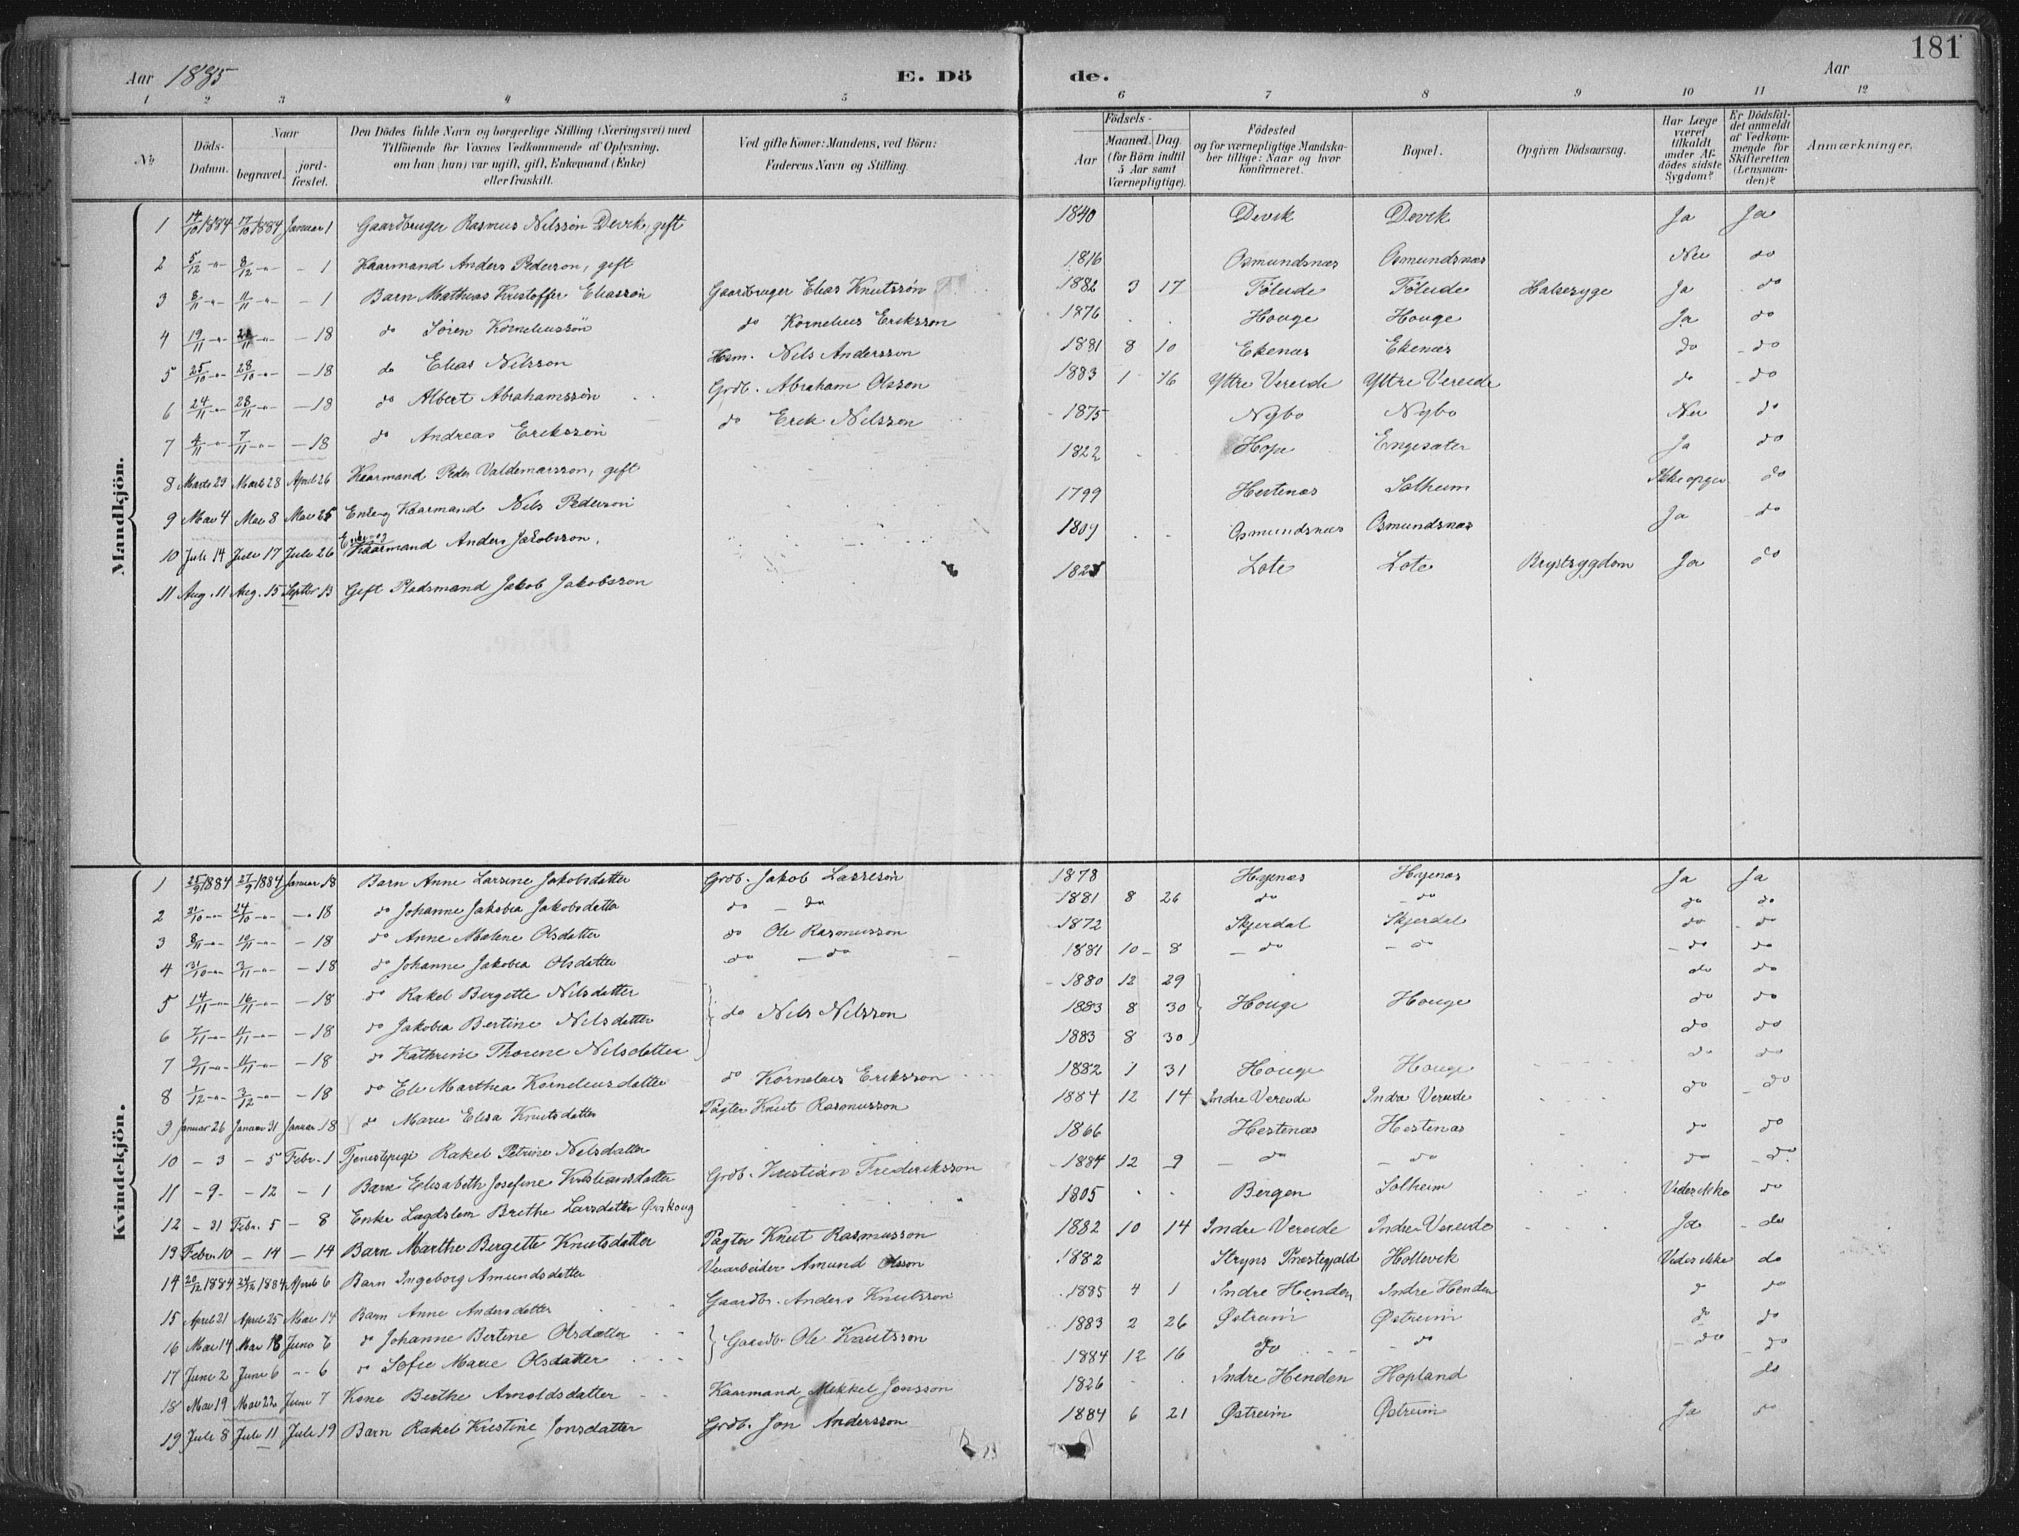 181
Aar 1885 E. Dö de. Aar
1 2 3 4 5 6 7 8 9 10 11 12
No Döds-Datum. Naar begravet. jord-fæstet. Den Dödes fulde Navn og borgerlige Stilling (Næringsvei) med Tilföiende for Voxnes Vedkommende af Oplysning, om han (hun) var ugift, gift, Enkemand (Enke) eller fraskilt. Ved gifte Koner: Mandens, ved Börn: Faderens Navn og Stilling. Födsels- Aar Maaned. Dag. (for Börn indtil 5 Aar samt Værnepligtige). Födested og for værnepligtige Mandskaber tillige: Naar og hvor konfirmeret. Bopæl. Opgiven Dödsaarsag. Har Læge været tilkaldt under Afdödes sidste Sygdom? Er Dödsfaldet anmeldt af Vedkommende for Skifteretten (Lensmanden)? Anmærkninger.
Mandkjön.
1 14/10 1884 17/10 1884 Januar 1 Gaardbruger Rasmus Nilssön Devik, gift 1840 Devik Devik Ja Ja
2 5/12 -"- 8/12 -"- - 1 Kaarmand Anders Pederson, gift 1816 Osmundsnæs Osmundsnæs Nei do
3 8/11 -"- 11/11 -"- - 1 Barn Mathias Kristoffer Eliassön Gaardbruger Elias Knutssön 1882 3 17 Tøleide Tøleide Halssyge Ja do
4 19/11 -"- -"- - 18 do Sören Korneliussön do Kornelius Eriksson 1876 Houge Houge Ja do
5 25/10 -"- 28/10 -"- - 18 do Elias Nilsson Hsm. Nils Andersson 1881 8 10 Ekenæs Ekenæs do - do
6 24/11 -"- 28/11 -"- - 18 do Albert Abrahamssön Grdb. Abraham Olsson 1883 1 16 Yttre Vereide Yttre Vereide do - do
7 4/11 -"- 7/11 -"- - 18 do Andreas Erikssön do Erik Nilsson 1875 Nybø Nybø Nei do
8 Marts 23 Marts 28 April 26 Kaarmand Peder Valdemarsson, gift 1822 Hope Engesæter Ja do
9 Mai 4 Mai 8 Mai 25 Enke og Kaarmand Nils Pederson 1799 Hestenæs Solheim Ikke opgiv do
10 Juli 14 Juli 17 Juli 26 Enke og Kaarmand Anders Jakobsson, 1809 Osmundsnæs Osmundsnæs Ja do
11 Aug. 11 Aug. 15 Septbr 13 Gift Pladsmand Jakob Jakobsson 1825 Lote Lote Brystsygdom Ja do
Kvindekjön.
1 25/9 1884 27/9 1884 Januar 18 Barn Anne Larsine Jakobsdatter Grdb. Jakob Lassesön 1878 Hyenæs Hyenæs Ja Ja
2 21/10 -"- 24/10 -"- -"- 18 do Johanne Jakobea Jakobsdatter do - do 1881 8 26 do - do do do
3 8/11 -"- 10/11 -"- - 18 do Anne Malene Olsdatter do Ole Rasmusson 1872 Skjerdal Skjerdal do - do
4 31/10 -"- 3/11 -"- - 18 do Johanne Jakobea Olsdatter do - do 1881 10 8 - do - do - do do
5 14/11 -"- 16/11 -"- - 18 do Rakel Bergette Nilsdatter 1880 12 29 do do
6 7/11 -"- 11/11 -"- - 18 do Jakobea Bertine Nilsdatter do Nils Nilsson 1883 8 30 Houge Houge do do
7 9/11 -"- 11/11 -"- - 18 do Kathrine Thorine Nilsdatter 1883 8 30 do do
8 1/12 -"- 3/12 -"- - 18 do Eli Marthea Korneliusdatter do Kornelius Eriksson 1882 1 31 Houge Houge do do
9 Januar 26 Januar 31 Januar 18 do Marie Elisa Knutsdatter Pagter Knut Rasmusson 1884 12 14 Indre Vereide Indre Vereide do - do
10 - 3 - 5 Febr. 1 Tjenestepige Rakel Petrine Nilsdatter 1866 Hestenæs Hestenæs do do
11 - 9 - - 12 - 1 Barn Elisabeth Josefine Kristiansdatter Grdb. Kristian Frederiksson 1884 12 9 - do - do do - do
12 - 31 Febr. 5 - 8 Enke Lægdslem Brethe Larsdatter Ørskoug 1805 Bergen Solheim Vides ikke do
13 Febr. 10 - 14 - 14 Barn Marthe Bergette Knutsdatter Pagter Knut Rasmusson 1882 10 14 Indre Vereide Indre Vereide Ja - do
14 20/12 1884 24/12 1884 April 6 Barn Ingeborg Amundsdatter Veiarbeider Amund Olsson 1882 Stryns Præstegjæld Hollevik Vides ikke do
15 April 21 April 25 Mai 14 Barn Anne Andersdatter Gaardbr. Anders Knutsson 1885 4 1 Indre Henden Indre Henden do
16 Mai 14 Mai 18 Juno 6 do Johanne Bertine Olsdatter Gaardb. Ole Knutsson 1883 2 26 Østreim Østreim do do
17 June 2 June 6 -"- 6 do Sofie Marie Olsdatter 1884 12 16 do - do - do - do
18 Mai 19 Mai 22 June 7 Kone Berthe Arnoldsdatter Kaarmand Mikkel Jonsson 1826 Indre Henden Hopland do
19 Juli 8 Juli 11 Juli 19 Barn Rakel Kristine Jonsdatter Grdb. Jon Andersson 1884 6 21 Østreim Østreim Ja do